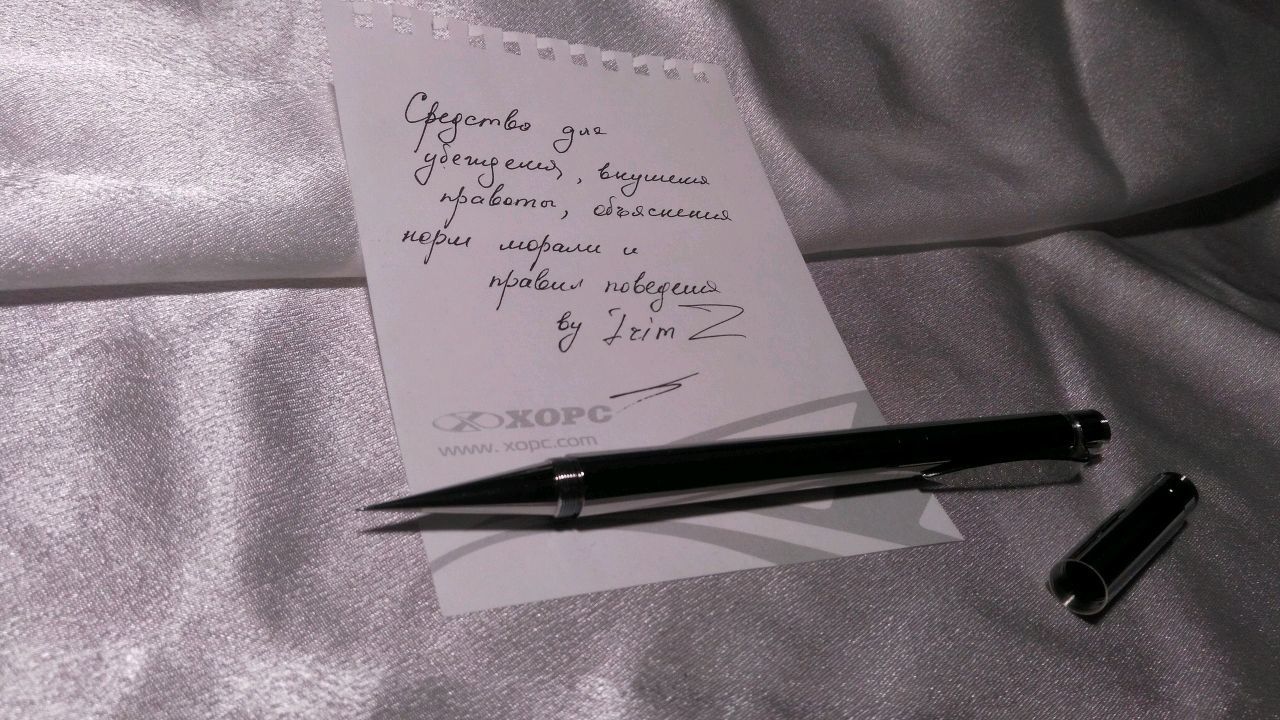 Средство для
убеждения, внушения
правоты, объяснения
норм морали и
правил поведения
by Irim Z
ХОРС
www.xopc.com